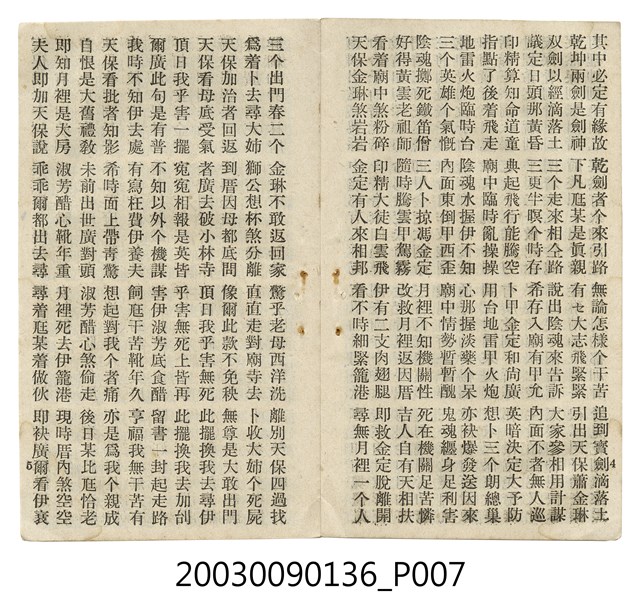 其中必定有緣故 乾劍者个來引路 無論怎樣个干苦 追到寶劍滴落土
乾坤兩劍是劍神 下凡尫某是眞親 有七大志飛緊緊 引出天保蕭金琳
双劍以經滴落土 三个走來相仝路 說出陰魂來告訴 大家參相用計謀
議定日頭那黃昏 三更半暝个時存 希存入廟有甲允 內面不者無人巡
印精算知命道童 典起飛行能騰空 卜甲金定和尚廣 英暗決定大予防
指點了後着飛走 廟中臨時亂操操 用台地雷甲火炮 想卜三个朗總巢
地雷火炮臨時台 陰魂水握伊不知 心那握淡藥个呆 亦袂爆發送因來
三个英雄个氣慨 內面東倒甲西歪 廟中情勢暫暫 鬼魂纏身足利害
陰魂擲死鐵笛僧 三人卜掠馮金定 月裡不知機關性 死在機關足苦憐
好得黃雲老祖師 隨時騰雲甲駕霧 改救月裡返因厝 吉人自有天相扶
看着廟中煞粉碎 印精大徒白雲飛 伊有二支肉翅腿 即救金定脫離開
天保金琳煞岩岩 金定有人來相邦 看不時細緊籠港 尋無月裡一个人
4
三个出門春二个 金琳不敢返回家 驚乎老母西洋洗 離別天保四過找
爲着卜去尋大姉 獅公想杯煞分離 直直走對廟寺去 卜收大姉个死屍
天保加治者回返 到厝因母都底問 像爾此款不免秧 無尊是大敢出門
天保看母底受氣 者廣去破小林寺 頂日我乎害無死 此擺換我去尋伊
頂日我乎害一擺 宛宛相報是英皆 乎害無死上皆再 此擺換我去加刣
爾廣此句是有普 不知以外个機謀 害伊淑芳底食醋 留書一封起走路
我時不知伊去處 有寫枉費伊養夫 飼尫干苦靴年久 亨福我無干苦有
天保看批者知影 希時面上帶青驚 想起對我个者痛 亦是爲我个親成
自恨是大舊禮敎 未前出世廣對頭 淑芳醋心煞偷走 後日某比尫恰老
即知月裡是大房 淑芳醋心靴年重 月裡死去伊籠港 現時厝內煞空空
夫人即加天保說 乖乖爾都出去尋 尋着尫某着做伙 即袂廣爾看伊衰
5
20030090136_P007